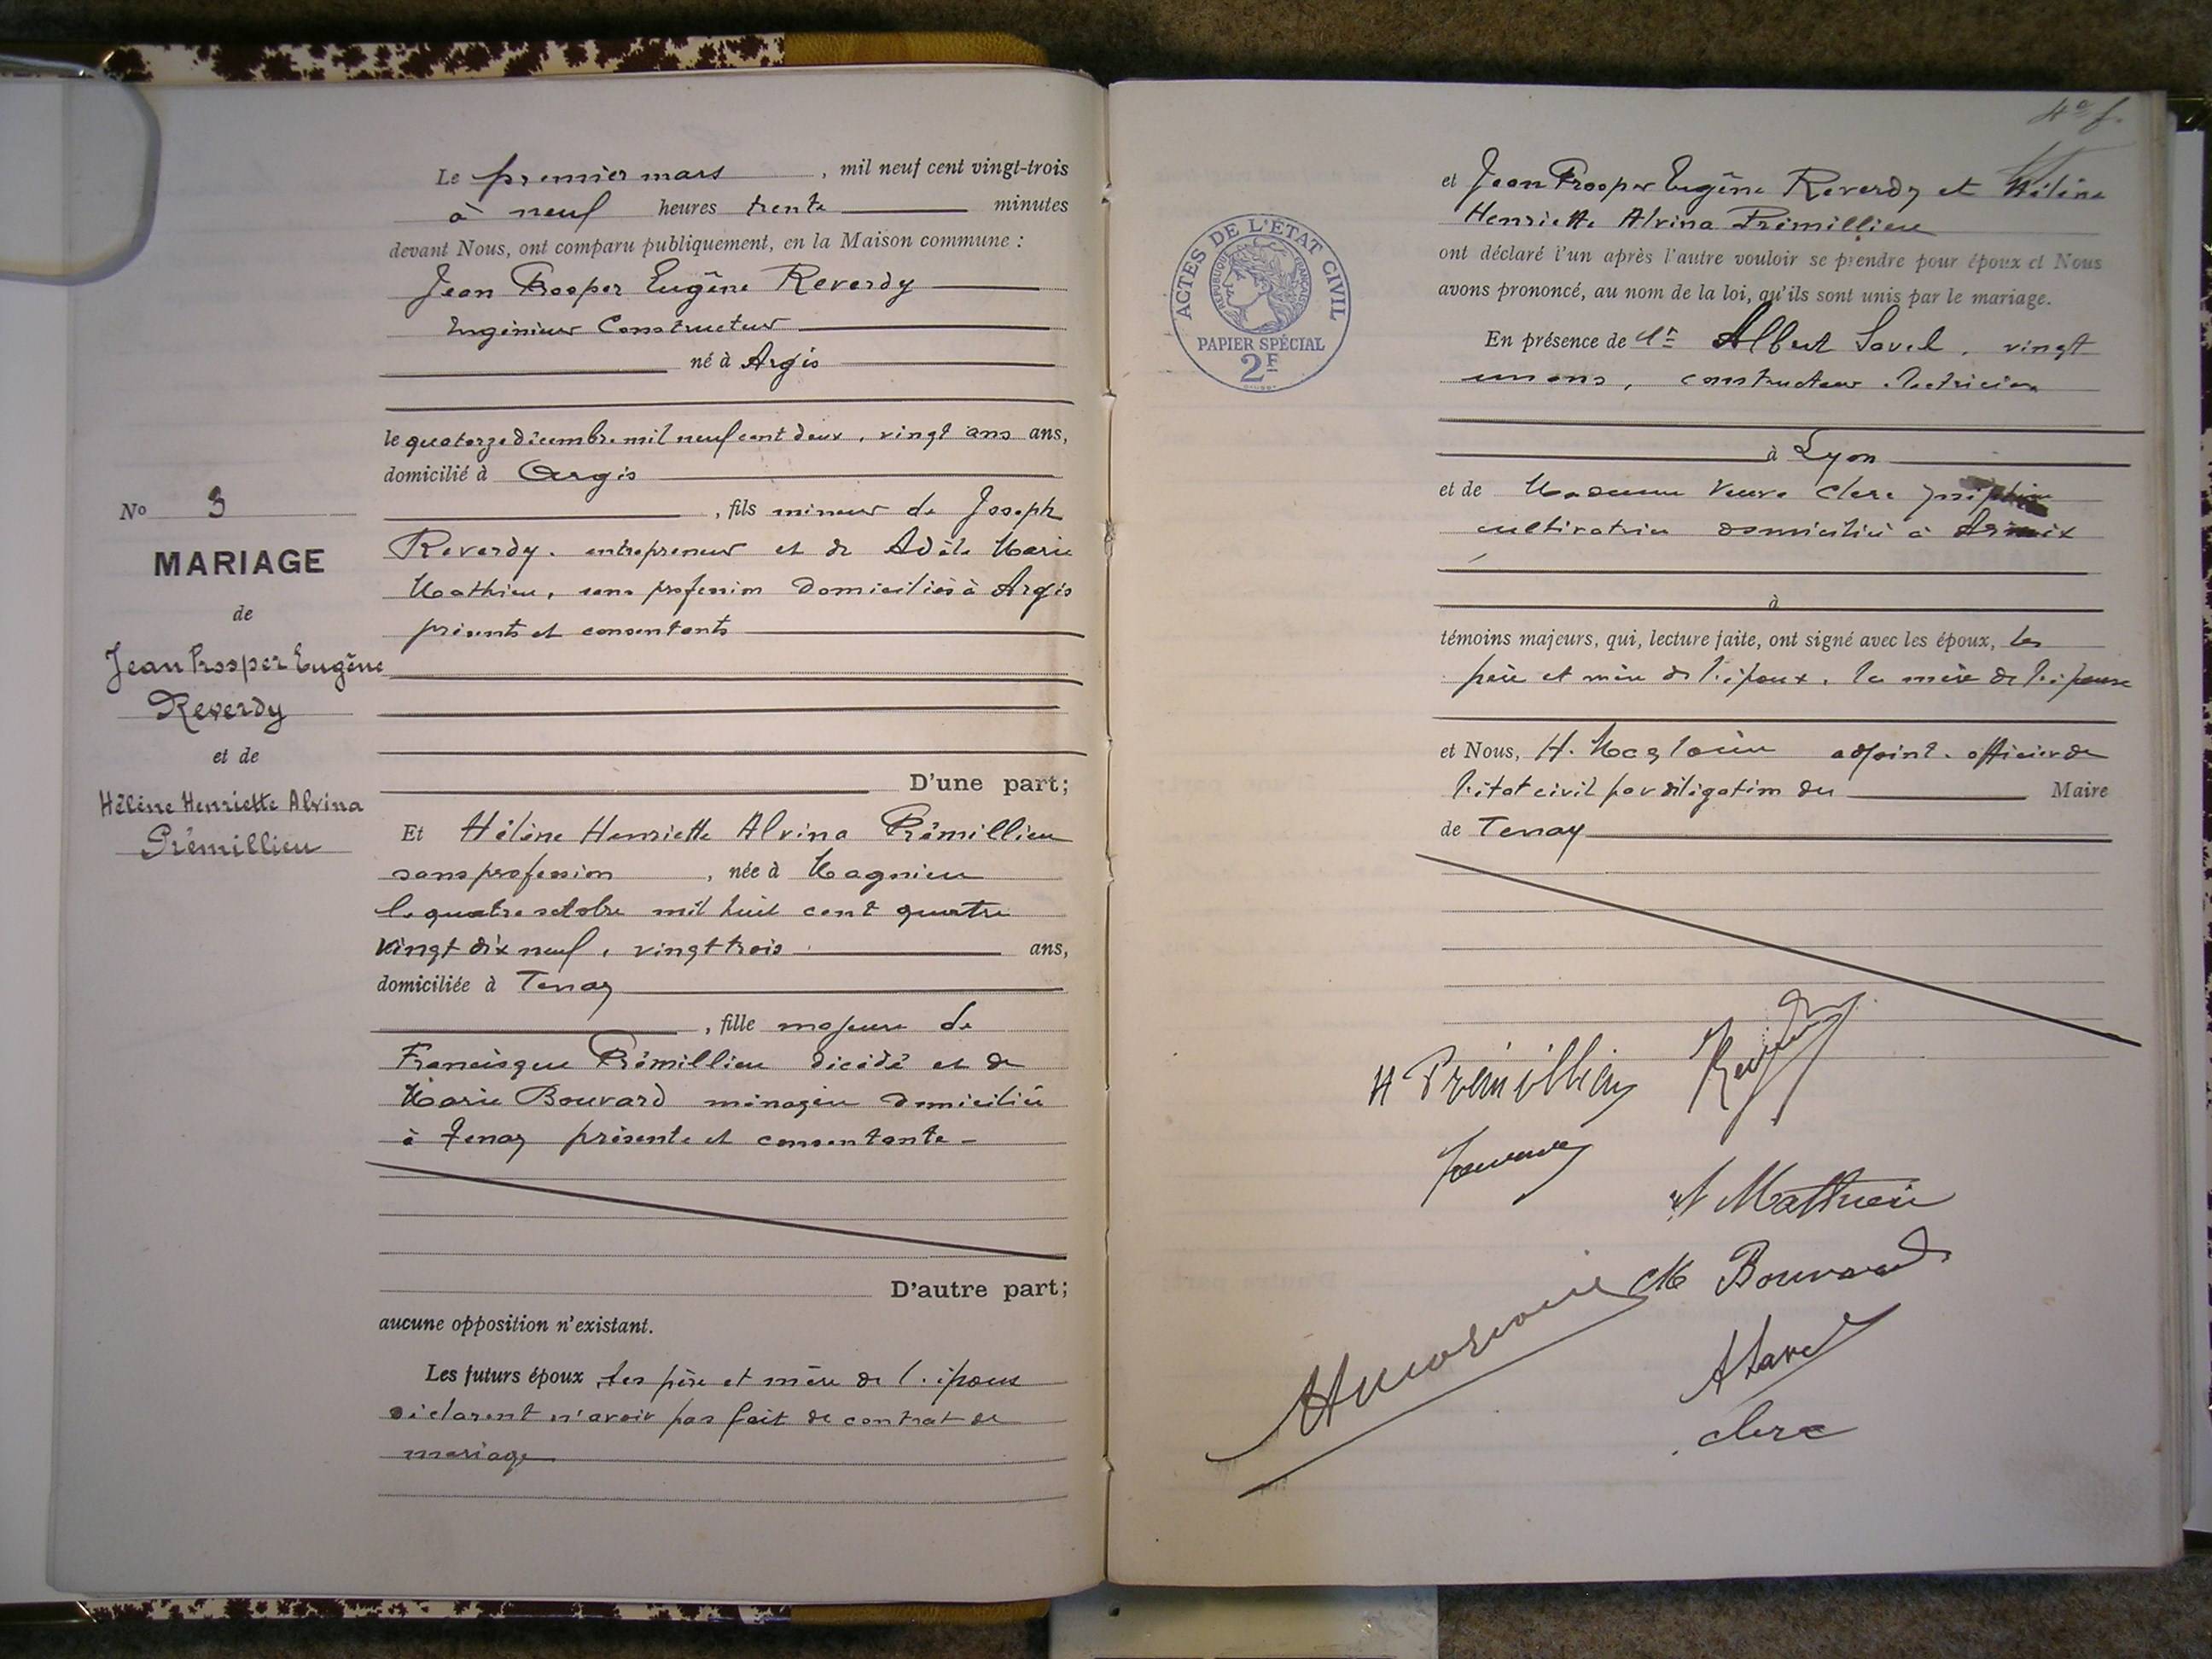 Le premier mars , mil neuf cent vingt-trois
à neuf heures trente minutes
devant Nous, ont comparu publiquement, en la Maison commune :
Jean Prosper Eugène Reverdy
Ingénieur Constructeur
né à Argis
le quatorze décembre mil neuf cent deux, vingt ans ans,
domicilié à Argis
, fils mineur de Joseph
Reverdy. entrepreneur et de Adèle Marie
Mathieu, sans profession domiciliés à Argis
présents et consentants
No 3
MARIAGE
de
Jean Prosper Eugène
Reverdy
et de
Hélène Henriette Alvina
Prémillieu
D'une part;
Et Hélène Henriette Alvina Prémillieu
sans profession , née à Magnieu
le quatre octobre mil huit cent quatre
vingt dix neuf, vingt trois ans,
domiciliée à Tenay
, fille majeure de
Francisque Prémillieu décédé et de
Marie Bouvard ménagère domiciliée
à Tenay présente et consentante -
D'autre part;
aucune opposition n'existant.
Les futurs époux, les père et mère de l'époux
déclarent n'avoir pas fait de contrat de
mariage
4e f.
et Jean Prosper Eugène Reverdy et Hélène
Henriette Alvina Prémillieu
ont déclaré l'un après l'autre vouloir se prendre pour époux et Nous
avons prononcé, au nom de la loi, qu'ils sont unis par le mariage.
ACTES DE L'ÉTAT CIVIL
RÉPUBLIQUE FRANÇAISE
PAPIER SPÉCIAL
2F
En présence de Mr Albert Savel, vingt
un ans, constructeur électricien
à Lyon
et de Madame Veuve Clerc
cultivatrice domiciliée à Armix
à
témoins majeurs, qui, lecture faite, ont signé avec les époux, les
père et mère de l'époux, la mère de l'épouse
et Nous, H. adjoint. officier de
l'état civil par délégation du Maire
de Tenay
H Prémillieu Reverdy
Mathieu
M Bouvard
A Savel
Clerc